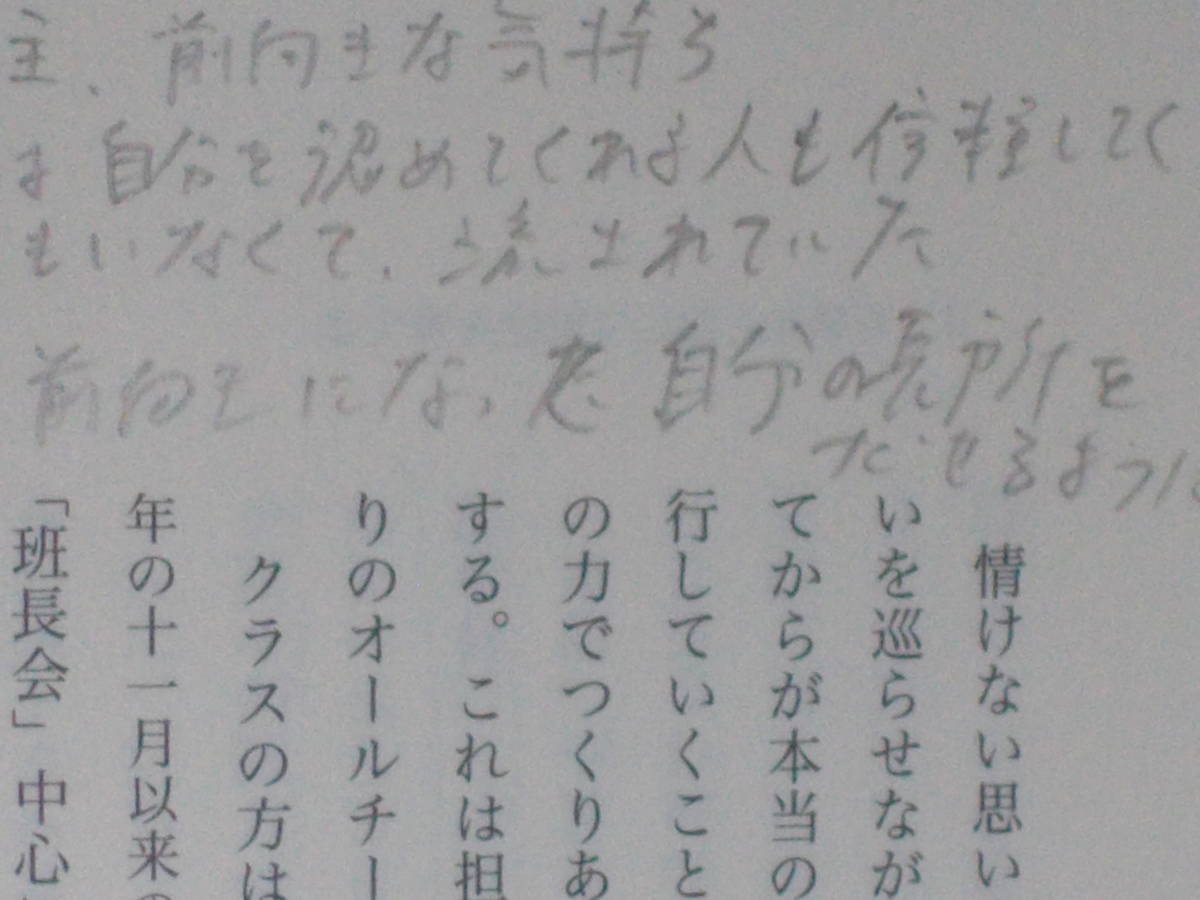 主、前向きな気持ち
は自分を認めてくれる人も信頼してく
もいなくて、流されていた
前向きになった 自分の長所を
だせるように
情けない思い
いを巡らせなが
てからが本当の
行していくこと
の力でつくりあ
する。これは担
りのオールチー
クラスの方は
年の十一月以来の
「班長会」中心